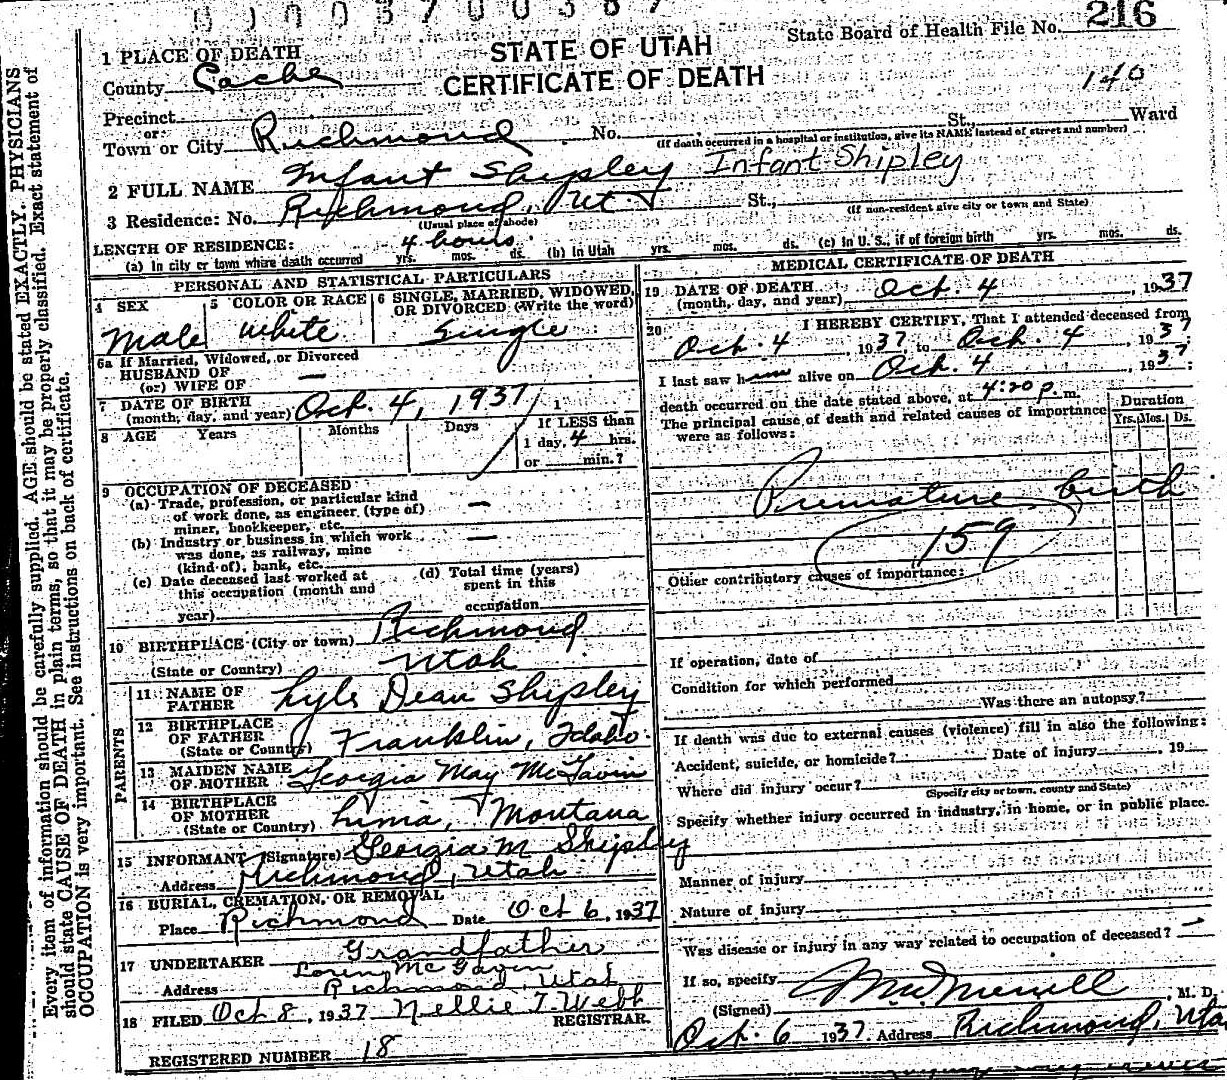 216
State Board of Health File No.
STATE OF UTAH
CERTIFICATE OF DEATH
140
1 PLACE OF DEATH
County Cache
Precinct
or
Town or City Richmond No. St., Ward
(If death occurred in a hospital or institution, give its NAME instead of street and number)
2 FULL NAME Infant Shipley Infant Shipley
3 Residence: No. Richmond, Ut. St.,
(Usual place of abode) (If non-resident give city or town and State)
LENGTH OF RESIDENCE: 4 hours
(a) In city or town where death occurred yrs. mos. ds. (b) In Utah yrs. mos. ds. (c) In U. S., if of foreign birth yrs. mos. ds.
PERSONAL AND STATISTICAL PARTICULARS
4 SEX 5 COLOR OR RACE 6 SINGLE, MARRIED, WIDOWED, OR DIVORCED (Write the word)
Male White Single
6a If Married, Widowed, or Divorced
HUSBAND OF —
(or) WIFE OF
7 DATE OF BIRTH
(month, day, and year) Oct. 4, 1937
8 AGE Years Months Days If LESS than
1 day, 4 hrs.
or min.?
9 OCCUPATION OF DECEASED
(a) Trade, profession, or particular kind
of work done, as engineer, (type of) —
miner, bookkeeper, etc.
(b) Industry or business in which work
was done, as railway, mine —
(kind of), bank, etc.
(c) Date deceased last worked at
this occupation (month and
year)
(d) Total time (years)
spent in this
occupation
10 BIRTHPLACE (City or town) Richmond
(State or Country) Utah
PARENTS
11 NAME OF
FATHER Lyle Dean Shipley
12 BIRTHPLACE
OF FATHER
(State or Country) Franklin, Idaho.
13 MAIDEN NAME
OF MOTHER Georgia May McGavin
14 BIRTHPLACE
OF MOTHER
(State or Country) Lima, Montana
15 INFORMANT (Signature) Georgia M Shipley
Address Richmond, Utah
16 BURIAL, CREMATION, OR REMOVAL
Place Richmond Date Oct 6, 1937
Grandfather
17 UNDERTAKER Loren McGavin
Address Richmond, Utah
18 FILED Oct 8, 1937 Nellie T. Webb
REGISTRAR.
REGISTERED NUMBER 18
MEDICAL CERTIFICATE OF DEATH
19 DATE OF DEATH
(month, day, and year) Oct. 4, 1937
20 I HEREBY CERTIFY, That I attended deceased from
Oct. 4, 1937 to Oct. 4, 1937;
I last saw him alive on Oct. 4, 1937;
death occurred on the date stated above, at 4:20 p. m.
The principal cause of death and related causes of importance
were as follows:
Duration
Yrs. Mos. Ds.
Premature birth
159
Other contributory causes of importance:
If operation, date of
Condition for which performed
Was there an autopsy?
If death was due to external causes (violence) fill in also the following:
Accident, suicide, or homicide? Date of injury , 19
Where did injury occur?
(Specify city or town, county and State)
Specify whether injury occurred in industry, in home, or in public place.
Manner of injury
Nature of injury
Was disease or injury in any way related to occupation of deceased? —
If so, specify
(Signed) Merrill, M. D.
Oct. 6 1937 Address Richmond, Uta
Every item of information should be carefully supplied. AGE should be stated EXACTLY. PHYSICIANS
should state CAUSE OF DEATH in plain terms, so that it may be properly classified. Exact statement of
OCCUPATION is very important. See instructions on back of certificate.